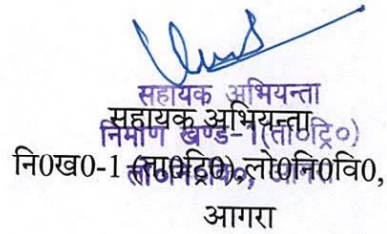 सहायक अभियन्ता
सहायक अभियन्ता
निर्माण खण्ड-1(ता०ट्रि०)
नि0ख0-1 (ता0ट्रि0),लो0नि0वि0,
आगरा